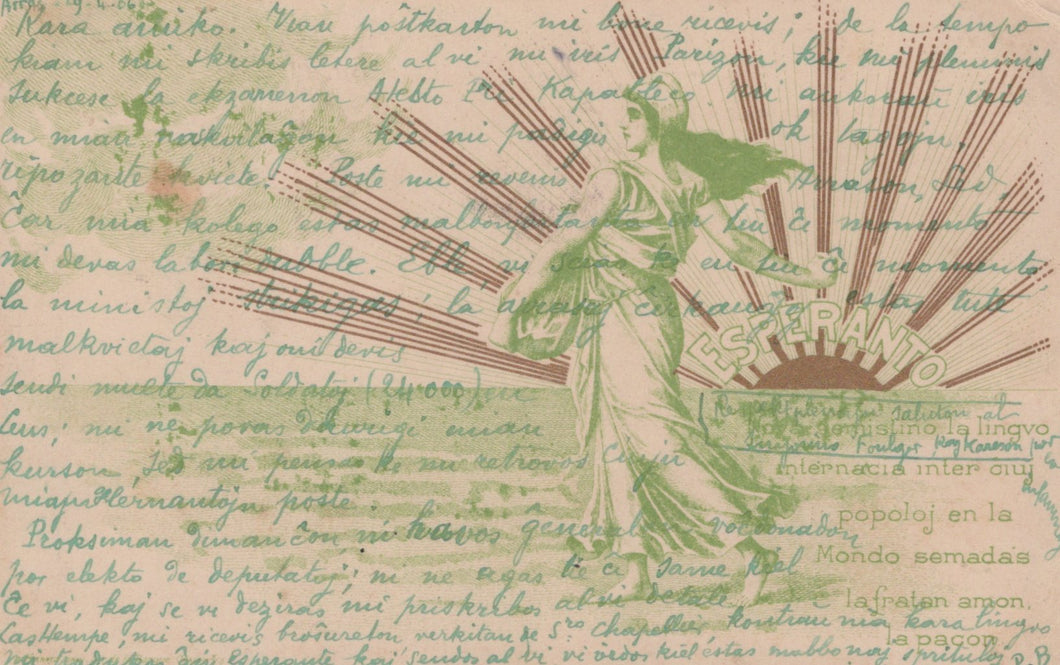 Arras 29-4-06
Kara amiko. Vian poŝtkarton mi bone ricevis; de la tempo
kiam mi skribis letere al vi mi iris Parizon, kie mi plenumis
sukcese la ekzamenon Atesto Pri Kapableco mi ankoraŭ iris
en mian naskvilaĝon kie mi pasigis ok tagojn,
ripozante kviete. Poste mi revenis Arrason, sed,
Ĉar mia kolego estas malbonfartanta en tiu ĉi momento
mi devas labori duoble. Eble vi scias ke en tiu ĉi momento
la ministoj strikigas; la arrasaj ĉirkaŭaĵoj estas tute
malkvietaj kaj oni devis
sendi multe da Soldatoj (24.000) en
Lens; mi ne povas daŭrigi mian
kurson sed mi pensas ke mi retrovos ĉiujn
miajn lernantojn poste.
Proksiman dimanĉon, ni havos ĝeneralan voĉdonadon
por elekto de deputatoj; ni ne agas tie ĉi same kiel
Ĉe vi, kaj se vi deziras mi priskribos al vi detale.
mi ricevis broŝureton verkitan de Sro Chapellier kontraŭ nia kara lingvo
Esperante kaj sendos al vi vi vidos kiel estas mabbonaj
Respektplenajn salutojn al
Sinjorino Foulger kaj
ESPERANTO
demistino la lingvo
internacia inter ciuj
popoloj en la
Mondo semadas
la fratan amon,
la pacon